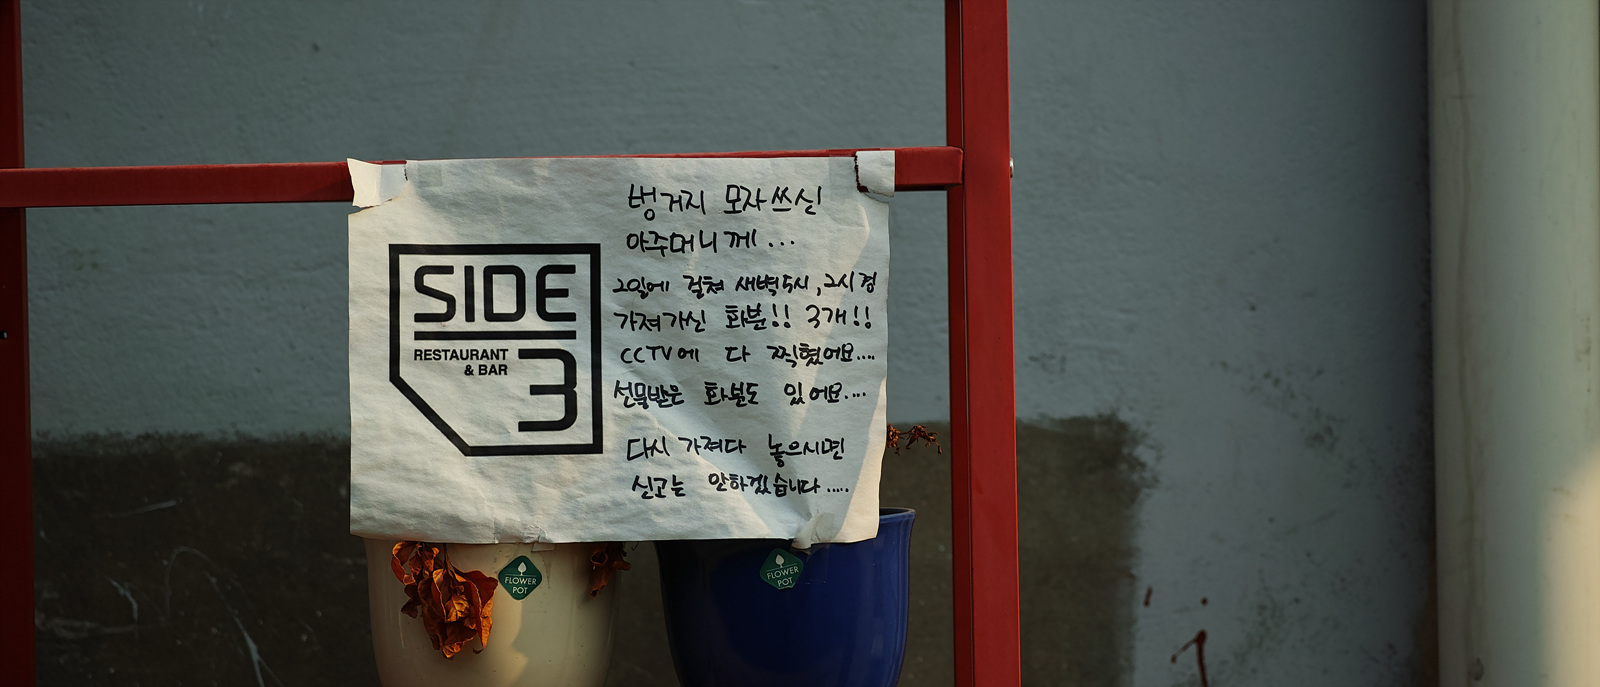 SIDE
RESTAURANT
& BAR
3
벙거지 모자쓰신
아주머니께...
2일에 걸쳐 새벽5시, 2시경
가져가신 화분!! 3개!!
CCTV에 다 찍혔어요....
선물받은 화분도 있어요....
다시 가져다 놓으시면
신고는 안하겠습니다.....
FLOWER
POT
FLOWER
POT